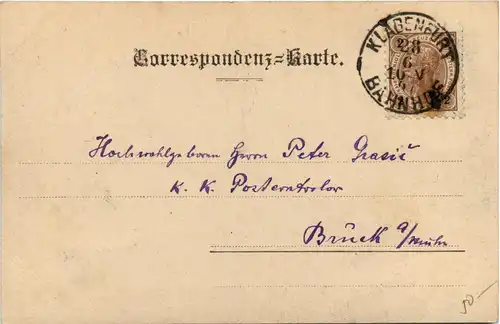 Correspondenz=Karte.
KLAGENFURT
28
6
10·V
BAHNHOF
Hochwohlgeboren Herrn Peter Grasić
K. K. Postcontrolor
Brück a/Muhr
50.—